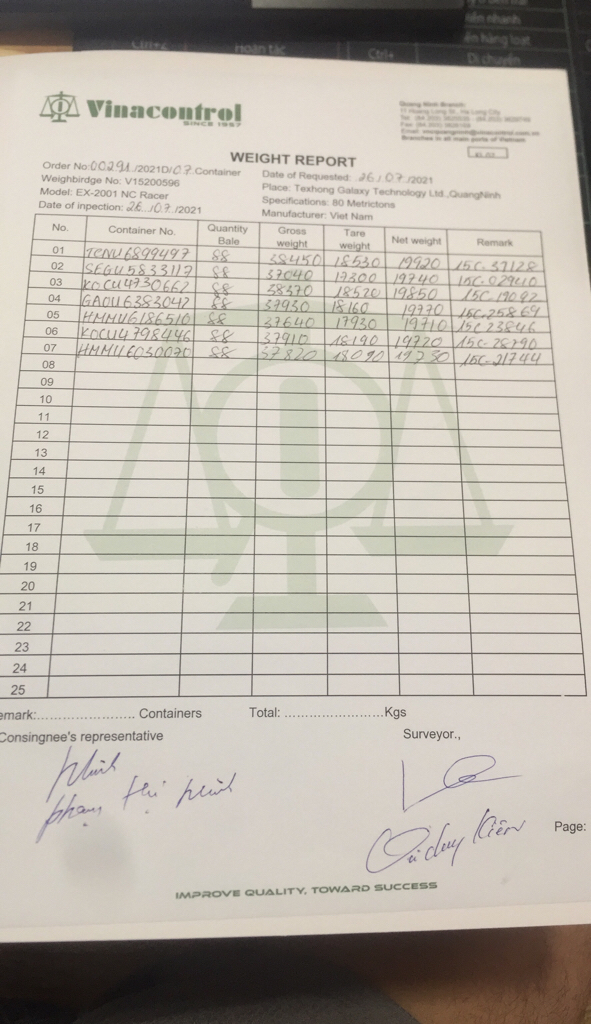 Ctrl+Z Hoàn tác Ctrl+ Di chuyển
Vinacontrol
SINCE 1957
Quang Ninh Branch:
WEIGHT REPORT
Order No:00291/2021D/07.Container
Date of Requested: 26/07/2021
Weighbirdge No: V15200596
Place: Texhong Galaxy Technology Ltd.,QuangNinh
Model: EX-2001 NC Racer
Specifications: 80 Metrictons
Date of inpection: 26/07/2021
Manufacturer: Viet Nam
No. Container No. Quantity Bale Gross weight Tare weight Net weight Remark
01 TCNU6899497 88 38450 18530 19920 15C-37128
02 SEGU5833117 88 37040 17300 19740 15C-02940
03 KOCU4730662 88 38370 18520 19850 15C-19092
04 GAOU6383042 88 37930 18160 19770 15C-25869
05 HMMU6186510 88 37640 17930 19710 15C 23846
06 KOCU4798446 88 37910 18190 19720 15C-28790
07 HMMU6030070 88 37820 18090 19730 15C-21744
08
09
10
11
12
13
14
15
16
17
18
19
20
21
22
23
24
25
emark:........................ Containers Total: .........................Kgs
Consingnee's representative Surveyor.,
Phạm thị
Kiên
Page:
IMPROVE QUALITY, TOWARD SUCCESS